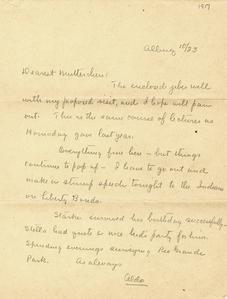 1917
Albuq 10/23
Dearest Mutterchen:
The enclosed jibes well
with my proposed visit, and I hope will pan
out. This is the same course of lectures as
Hornaday gave last year.
Everything fine here – but things
continue to pop up – I have to go out and
make a stump speech tonight to the Indians
on Liberty Bonds.
Starker survived his birthday successfully.
Stella had quite a nice kid's party for him.
Spending evenings surveying Rio Grande
Park. As always
Aldo